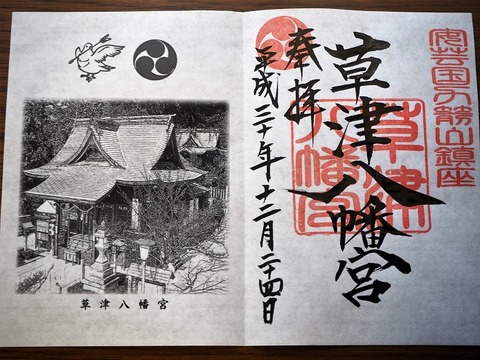 安芸国力箭山鎮座
草津八幡宮
草津
八幡宮
奉拝
平成三十年十二月二十四日
草津八幡宮